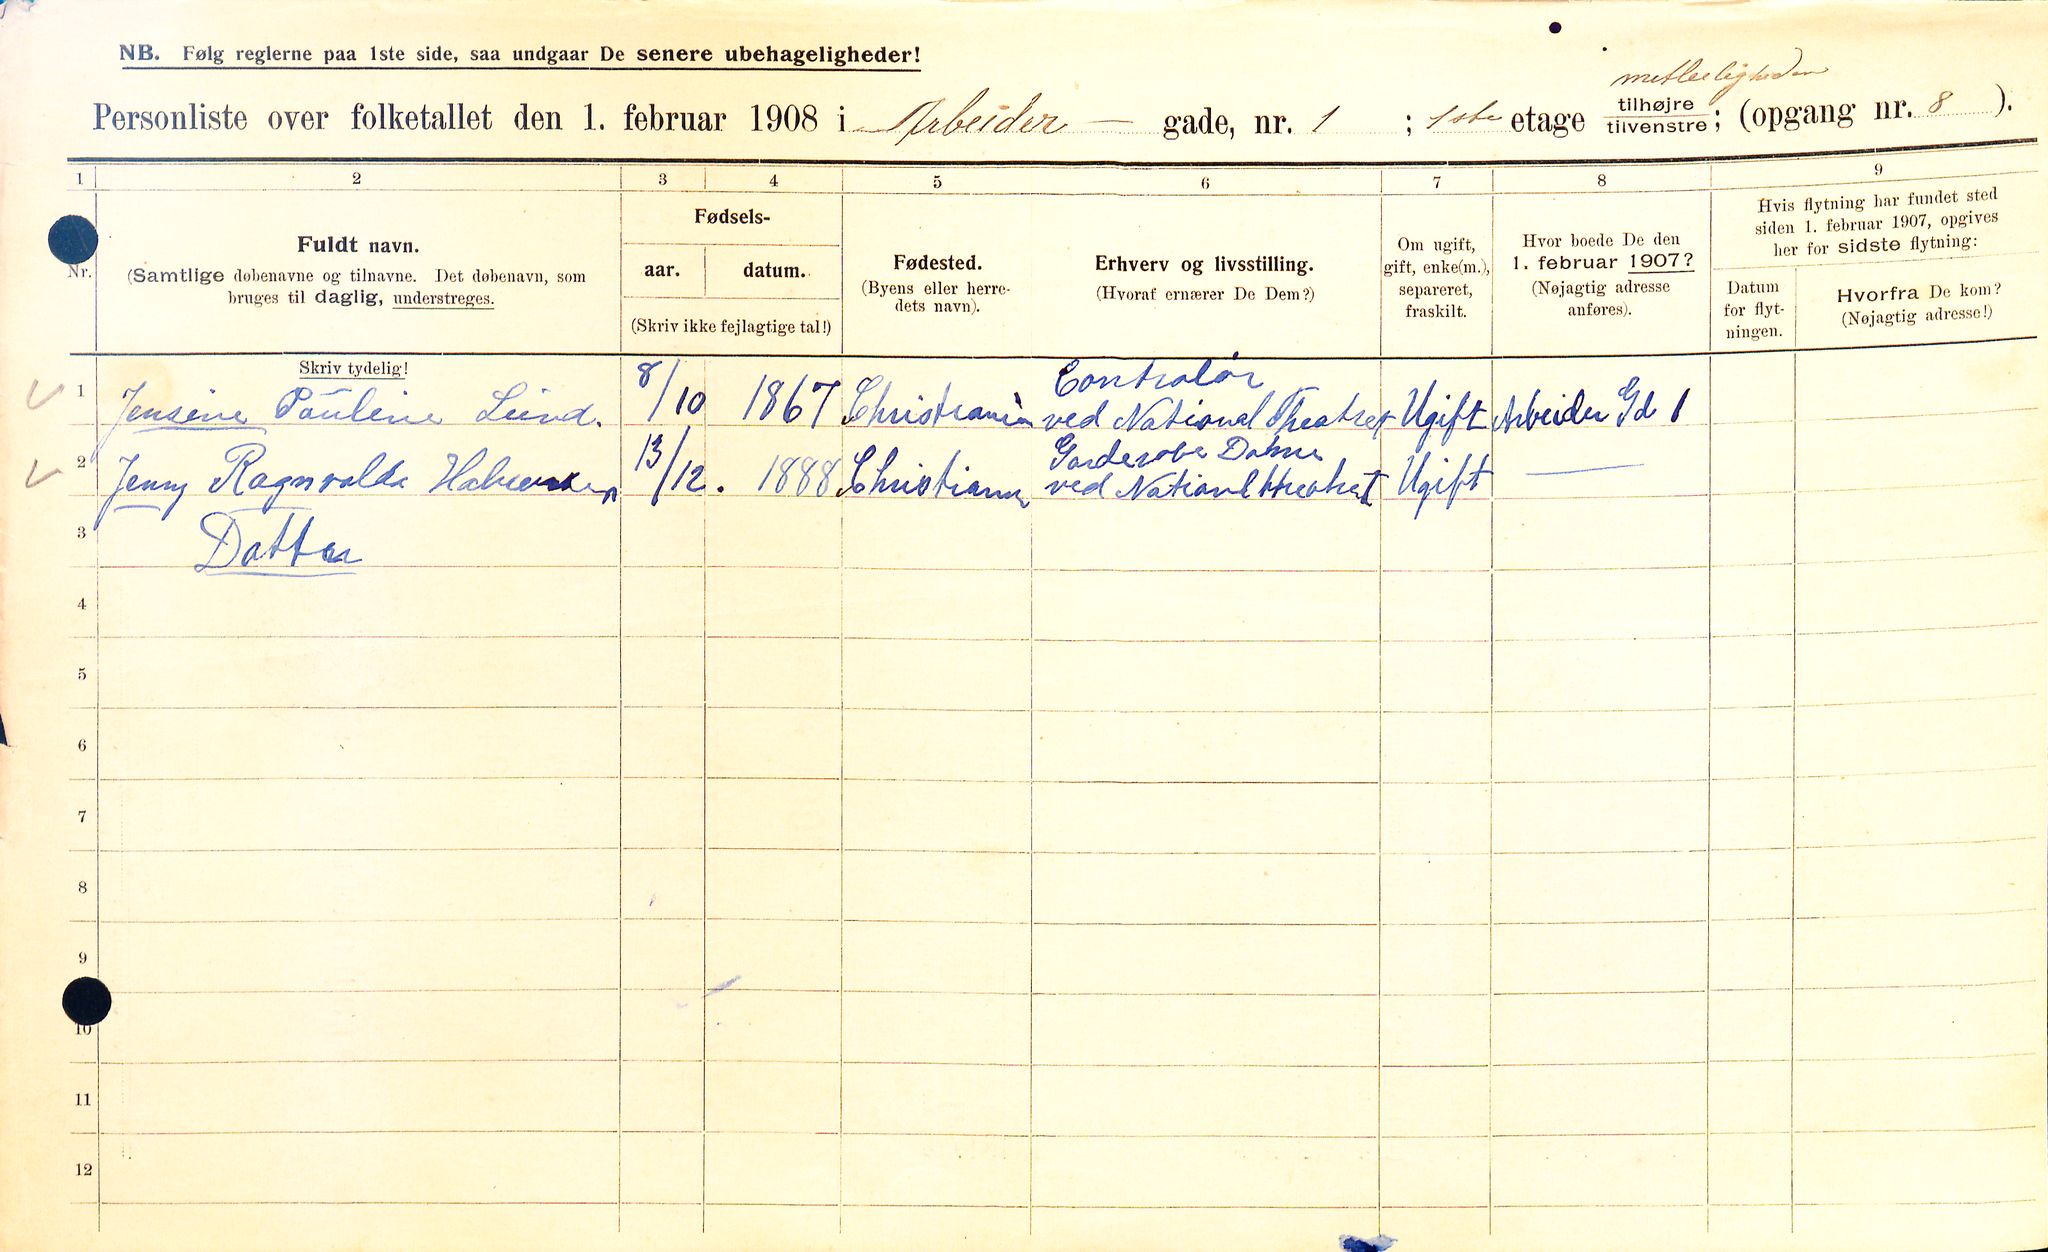 NB. Følg reglerne paa 1ste side, saa undgaar De senere ubehageligheder!
Personliste over folketallet den 1. februar 1908 i Arbeider — gade, nr. 1 ; 1ste etage tilhøjre tilvenstre; (opgang nr. 8 ).
1 2 3 4 5 6 7 8 9
Nr.
Fuldt navn.
(Samtlige døbenavne og tilnavne. Det døbenavn, som
bruges til daglig, understreges.
Skriv tydelig!
Fødsels-
aar. datum.
(Skriv ikke fejlagtige tal!)
Fødested.
(Byens eller herre-
dets navn).
Erhverv og livsstilling.
(Hvoraf ernærer De Dem?)
Om ugift,
gift, enke(m.),
separeret,
fraskilt.
Hvor boede De den
1. februar 1907?
(Nøjagtig adresse
anføres).
Hvis flytning har fundet sted
siden 1. februar 1907, opgives
her for sidste flytning:
Datum
for flyt-
ningen.
Hvorfra De kom?
(Nøjagtig adresse!)
1 Jensine Pauline Lund. 8/10 1867 Christiania Controlør
ved National Theatret Ugift Arbeider Gd 1
2 Jenny Ragnvalda 13/12. 1888 Christiania Garderobe Dame
ved Nationaltheatret Ugift —
3 Datter
4
5
6
7
8
9
10
11
12